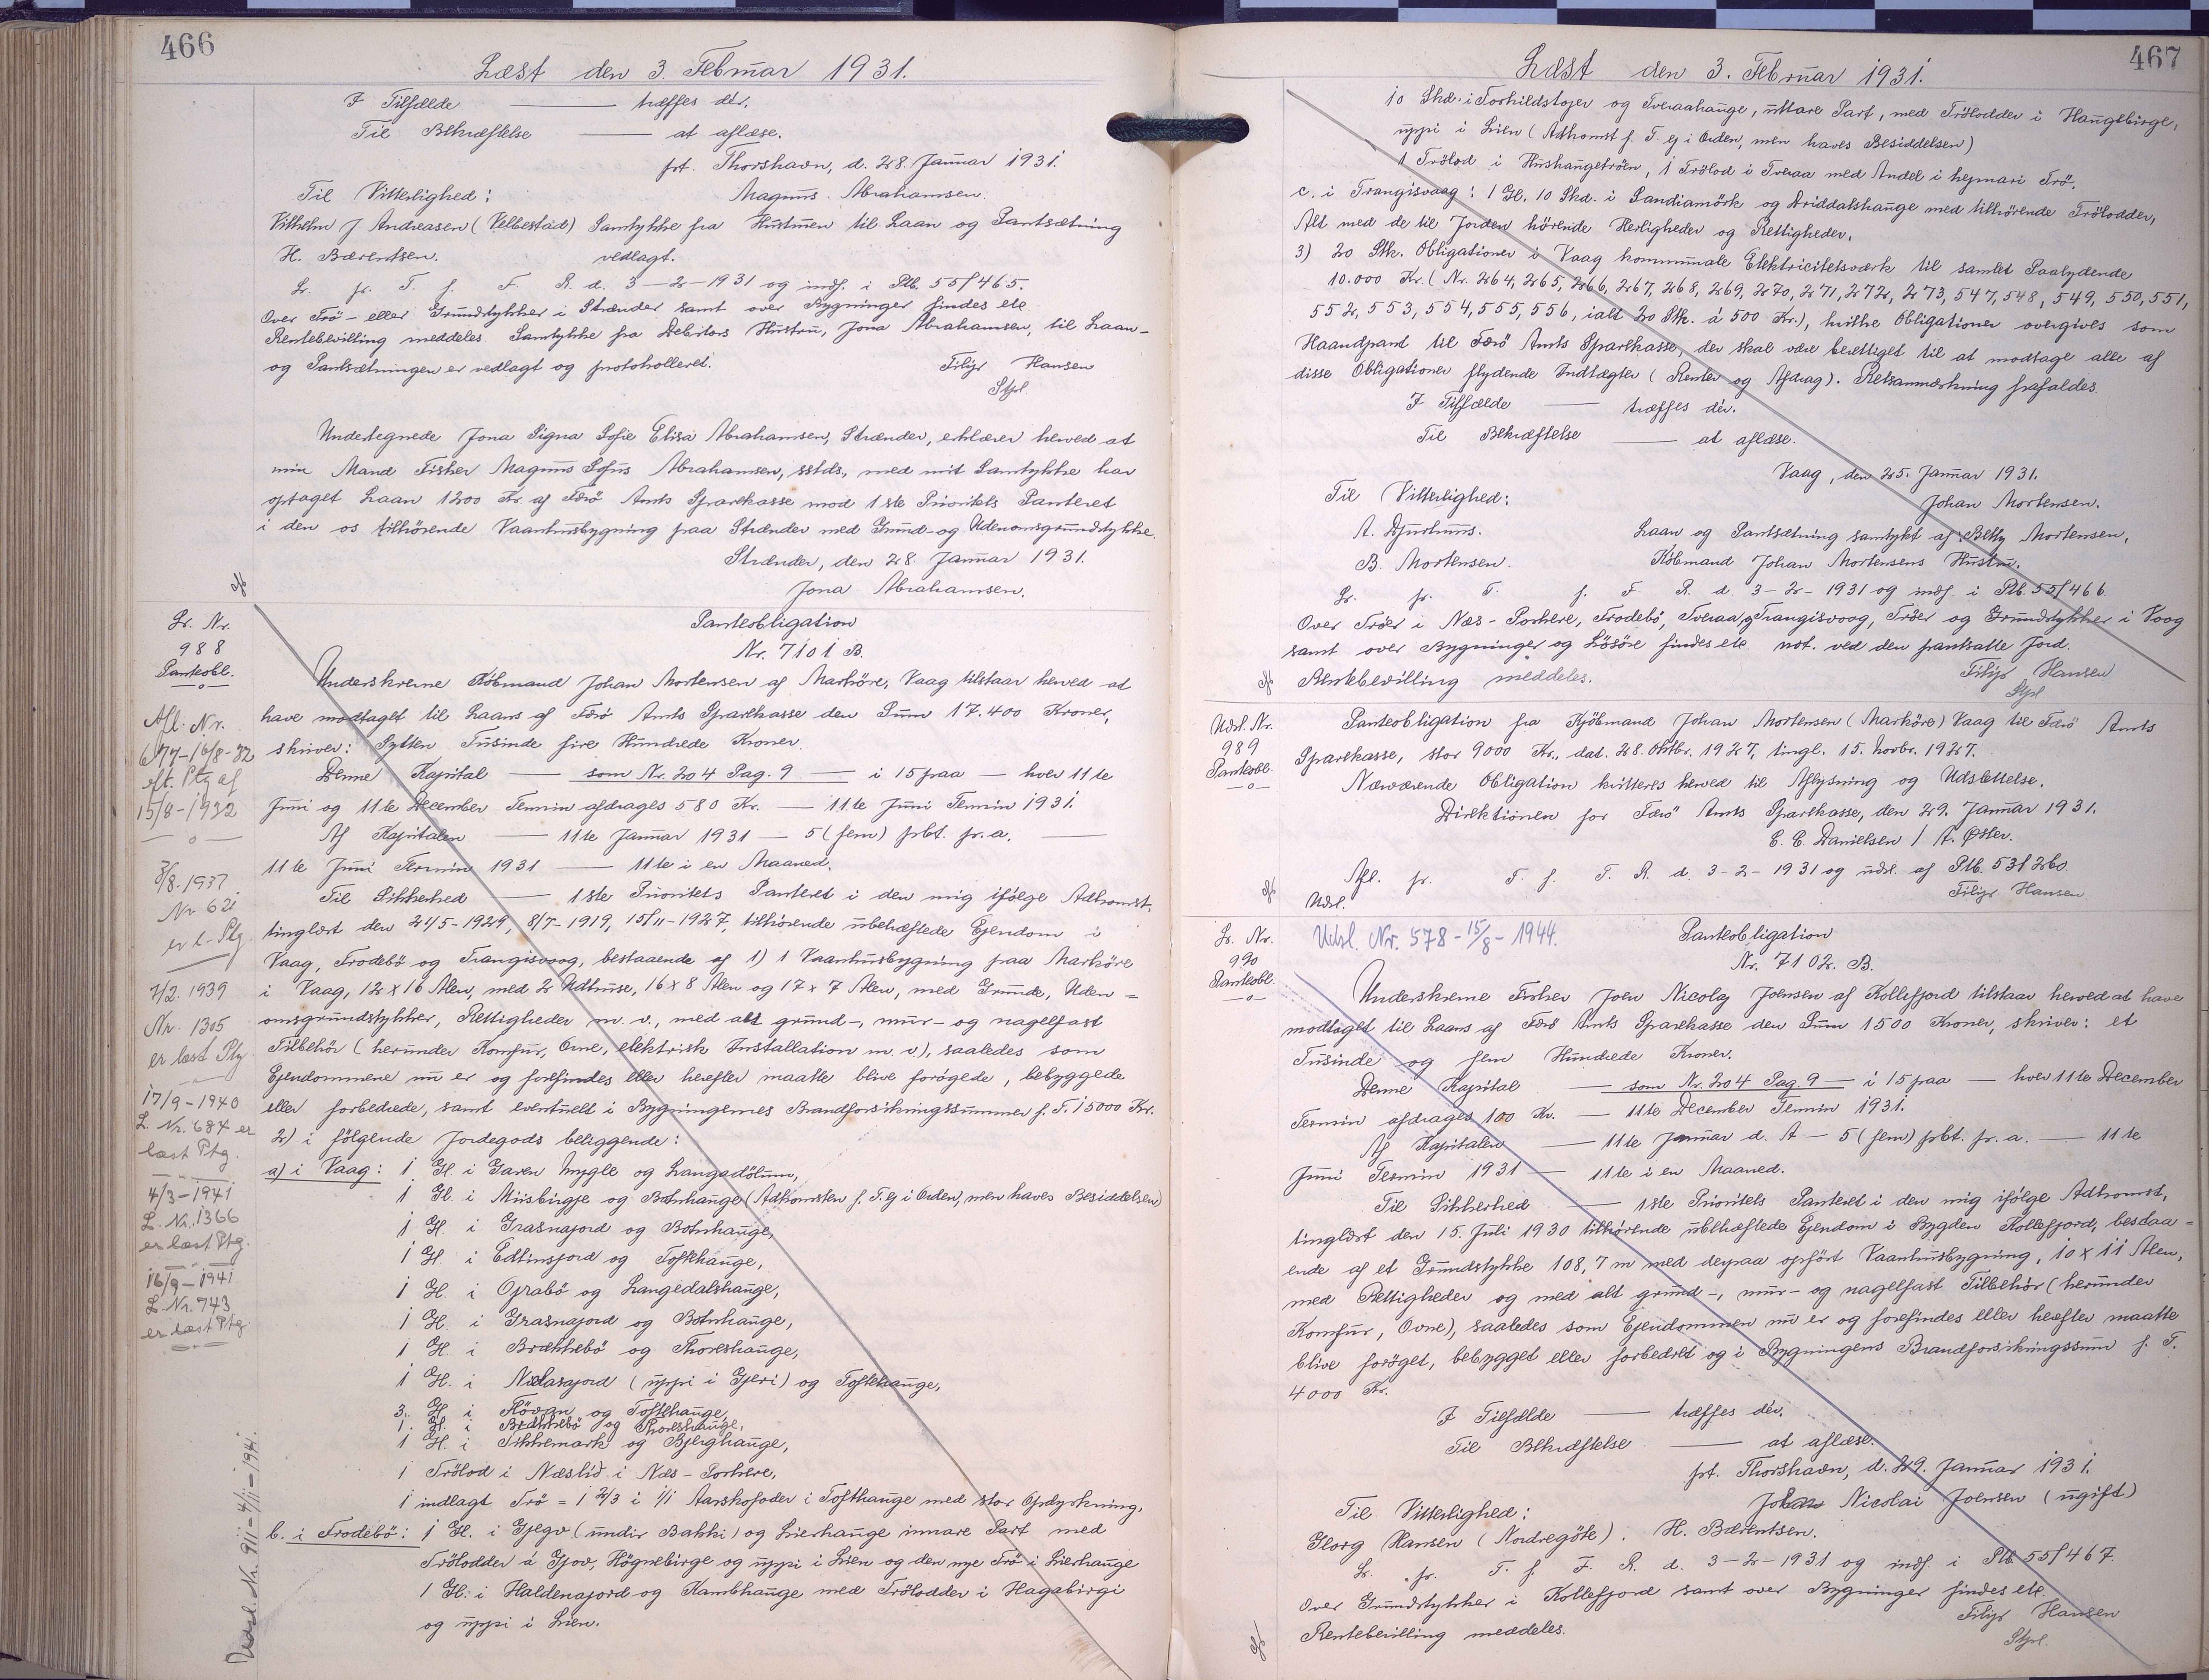 466
Læst den 3. Februar 1931.
I Tilfælde — træffes dér.
Til Bekræftelse — at aflæse.
pt. Thorshavn, d. 28. Januar 1931.
Til Vitterlighed: Magnus Abrahamsen.
Vilhelm J. Andreasen (Velbestad) Samtykke fra Hustruen til Laan og Pantsætning
H. Bærentsen. vedlagt.
Lr. pr. T. f. F. R. d. 3-2-1931 og indf. i Ptb. 55/465.
Over Trö- eller Grundstykker i Strænder samt over Bygninger findes etc.
Rentebevilling meddeles. Samtykke fra Debitors Hustru, Jona Abrahamsen, til Laan-
og Pantsætningen er vedlagt og protokolleret.
Filip Hansen
Stpl.
Undertegnede Jona Signa Sofie Elisa Abrahamsen, Strænder, erklærer herved at
min Mand Fisker Magnus Sofus Abrahamsen, sstds., med mit Samtykke har
optaget Laan 1200 Kr. af Færö Amts Sparekasse mod 1ste Prioritets Panteret
i den os tilhörende Vaanhusbygning paa Strænder med Grund- og Udenomsgrundstykke.
Strænder, den 28. Januar 1931.
Jona Abrahamsen.
Lr. Nr.
988
Panteobl.
Afl. Nr.
677-16/8-32
eft. Ptg af
15/8-1932
3/8-1937
Nr 621
er l. Ptg.
7/2. 1939
Nr. 1305
er læst Ptg
17/9-1940
L. Nr. 684 er
læst Ptg.
4/3-1941
L. Nr. 1366
er læst Ptg.
16/9-1941
L. Nr. 743
er læst Ptg
Udsl. Nr. 911-4/11-1941.
Panteobligation
Nr. 7101 B.
Underskrevne Köbmand Johan Mortensen af Marköre, Vaag tilstaar herved at
have modtaget til Laans af Færö Amts Sparekasse den Sum 17.400 Kroner,
skriver: Sytten Tusinde fire Hundrede Kroner.
Denne Kapital — som Nr. 204 Pag. 9 — i 15 paa — hver 11te
Juni og 11te December Termin afdrages 580 Kr. — 11te Juni Termin 1931.
Af Kapitalen — 11te Januar 1931 — 5 (fem) pct. pr. a. —
11te Juni Termin 1931 — 11te i en Maaned.
Til Sikkerhed — 1ste Prioritets Panteret i den mig ifölge Adkomst,
tinglæst den 21/5-1929, 8/7-1919, 15/11-1927, tilhörende ubehæftede Ejendom i
Vaag, Frodebö og Trangisvaag, bestaaende af 1) 1 Vaanhusbygning paa Marköre
i Vaag, 12 x 16 Alen, med 2 Udhuse, 16 x 8 Alen og 17 x 7 Alen, med Grunde, Uden=
omsgrundstykker, Rettigheder m. v., med alt grund-, mur- og nagelfast
Tilbehör (herunder Komfur, Ovne, elektrisk Installation m. v.), saaledes som
Ejendommene nu er og forefindes eller herefter maatte blive forögede, bebyggede
eller forbedrede, samt eventuelt i Bygningernes Brandforsikringssummer f. T. 15000 Kr.
2) i fölgende Jordegods beliggende:
a) i Vaag: 1 Gl. i Garen Mygle og Langadölum,
1 Gl. i Miisbirgje og Botnhauge (Adkomsten f. T. ej i Orden, men haves Besiddelsen)
1 Gl. i Grasnajord og Botnhauge,
1 Gl. i Edlinsjord og Toftehauge,
1 Gl. i Oprabö og Langedalshauge,
1 Gl. i Grasnajord og Botnhauge,
1 Gl. i Brækkebö og Thoreshauge,
1 Gl. i Nælasajord (uppi i Gjeri) og Toftehauge,
3. Gl. i Flövan og Tofthauge,
1. Gl. i Brækkebö og Thoreshauge,
1 Gl. i Sikkemark og Bjerghauge,
1 Trölod i Næslid i Næs-Porkere,
1 indlagt Trö = 1 2/3 i 1/1 Aarskofoder i Tofthauge med stor Opdyrkning,
b. i Frodebö: 1 Gl. i Gjegv (undir Bakki) og Lierhauge innare Part med
Trölodder á Gjov, Högnebirge og uppi i Lien og den nye Trö i Lierhauge
1 Gl. i Haldenajord og Kambhauge med Trölodder i Hagabirgi
og uppi i Lien.
467
Læst den 3. Februar 1931.
10 Skd. i Torkildstojer og Tveraahauge, uttare Part, med Trölodder i Haugebirge,
uppi i Lien (Adkomst f. T. ej i Orden, men haves Besiddelsen)
1 Trölod i Hushaugetröen, 1 Trölod i Tveraa med Andel i hejmari Trö.
c. i Trangisvaag: 1 Gl. 10 Skd. i Sandiamörk og Driddalshauge med tilhörende Trölodder,
Alt med de til Jorden hörende Herligheder og Rettigheder.
3) 20 Stk. Obligationer i Vaag kommunale Elektricitetsværk til samlet Paalydende
10.000 Kr. (Nr. 264, 265, 266, 267, 268, 269, 270, 271, 272, 273, 547, 548, 549, 550, 551,
552, 553, 554, 555, 556, ialt 20 Stk. á 500 Kr.), hvilke Obligationer overgives som
Haandpant til Færö Amts Sparekasse, der skal være berettiget til at modtage alle af
disse Obligationer flydende Indtægter (Renter og Afdrag). Retsanmærkning frafaldes.
I Tilfælde — træffes dér.
Til Bekræftelse — at aflæse.
Vaag, den 25. Januar 1931.
Til Vitterlighed: Johan Mortensen.
A. Djurhuus. Laan og Pantsætning samtykt af: Betty Mortensen,
B. Mortensen. Köbmand Johan Mortensens Hustru.
Lr. pr. T. f. F. R. d. 3-2-1931 og indf. i Ptb. 55/466.
Over Tröer i Næs-Porkere, Frodebö, Tveraa, og Trangisvoog, Tröer og Grundstykker i Voog
samt over Bygninger og Lösöre findes etc. not. ved den pantsatte Jord.
Rentebevilling meddeles. Filip Hansen
Stpl.
Udsl. Nr.
989
Panteobl.
Panteobligation fra Kjöbmand Johan Mortensen (Marköre) Vaag til Færö Amts
Sparekasse, stor 9000 Kr., dat. 28. Oktbr. 1927, tingl. 15. Novbr. 1927.
Nærværende Obligation kvitteres herved til Aflysning og Udslettelse.
Direktionen for Færö Amts Sparekasse, den 29. Januar 1931.
E. E. Danielsen / A. Öster.
Afl. pr. T. f. F. R. d. 3-2-1931 og udsl. af Ptb. 53/260.
Udsl. Filip Hansen
Lr. Nr.
990
Panteobl.
Udsl. Nr. 578-15/8-1944.
Panteobligation
Nr. 7102. B.
Underskrevne Fisker Joen Nicolaj Joensen af Kollefjord tilstaar herved at have
modtaget til Laans af Færö Amts Sparekasse den Sum 1500 Kroner, skriver: et
Tusinde og fem Hundrede Kroner.
Denne Kapital — som Nr. 204 Pag. 9 — i 15 paa — hver 11te December
Termin afdrages 100 Kr. — 11te December Termin 1931.
Af Kapitalen — 11te Januar d. A — 5 (fem) pct. pr. a. — 11te
Juni Termin 1931 — 11te i en Maaned.
Til Sikkerhed — 1ste Prioritets Panteret i den mig ifölge Adkomst,
tinglæst den 15. Juli 1930 tilhörende ubehæftede Ejendom i Bygden Kollefjord, bestaa=
ende af et Grundstykke 108,7 m med derpaa opfört Vaanhusbygning, 10 x 11 Alen,
med Rettigheder og med alt grund-, mur- og nagelfast Tilbehör (herunder
Komfur, Ovne), saaledes som Ejendommen nu er og forefindes eller herefter maatte
blive foröget, bebygget eller forbedret og i Bygningens Brandforsikringssum f. T.
4000 Kr.
I Tilfælde — træffes dér.
Til Bekræftelse — at aflæse.
pt. Thorshavn, d. 29. Januar 1931.
Til Vitterlighed: Nicolai Joensen (ugift)
Georg Hansen (Nordregöte). H. Bærentsen.
Lr. pr. T. f. F. R. d. 3-2-1931 og indf. i Ptb. 55/467.
Over Grundstykker i Kollefjord samt over Bygninger findes etc.
Rentebevilling meddeles. Filip Hansen
Stpl.